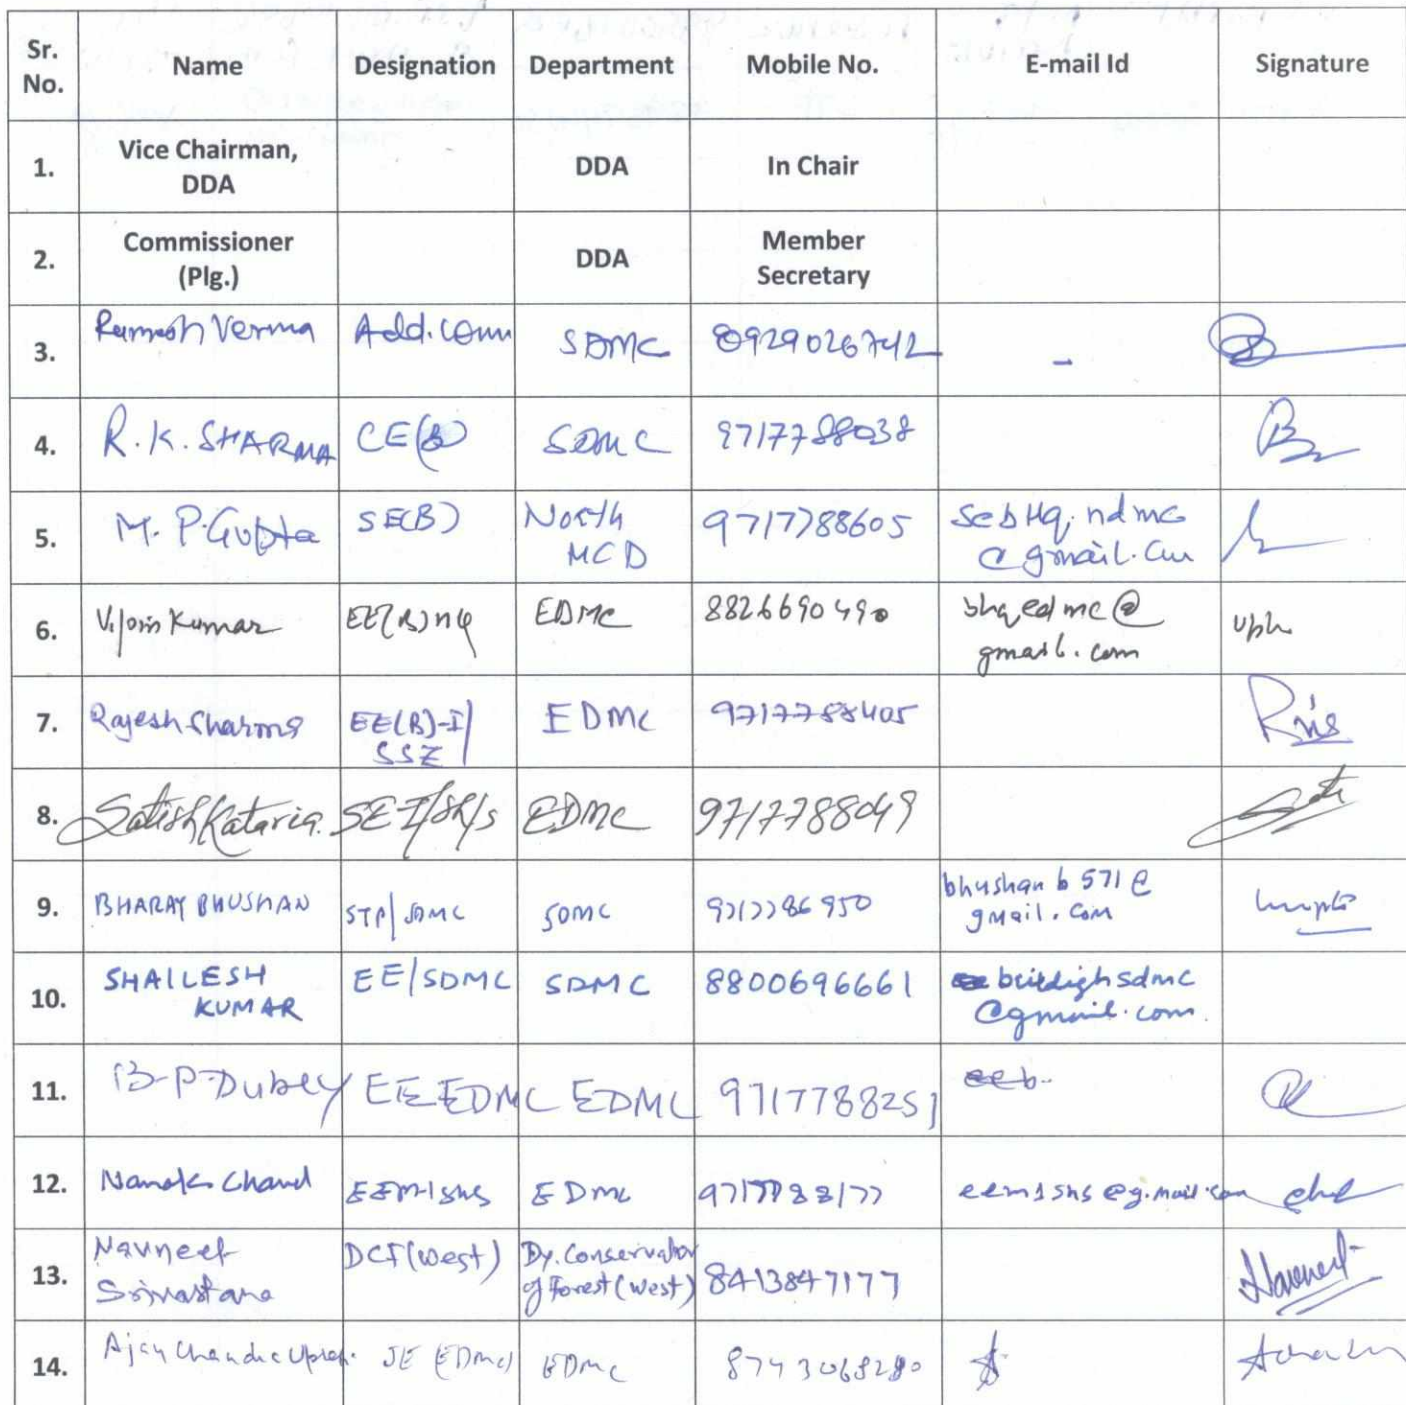 Sr. No. Name Designation Department Mobile No. E-mail Id Signature
1. Vice Chairman, DDA DDA In Chair
2. Commissioner (Plg.) DDA Member Secretary
3. Ramesh Verma Add. Comm SDMC 0929026742 -
4. R.K. SHARMA CE(B) SDMC 9717788038
5. M. P. Gupta SE(B) North MCD 9717788605 sebHq.ndmc @gmail.com
6. Vipin Kumar EE(B)HQ EDMC 8826690490 bhqedmc@ gmail.com
7. Rajesh Sharma EE(B)-I/ SSZ EDMC 9717788405
8. Satish Kataria. EDMC 9717788049
9. BHARAT BHUSHAN STP/SDMC SDMC bhushanb571@ gmail.com
10. SHAILESH KUMAR EE/SDMC SDMC 8800696661 @gmail.com.
11. B-P-Dubey EE EDMC EDMC 9717788251
12. Nanak Chand EDMC eem1shs@g.mail.com
13. Navneet Srivastava DCF(West) Dy. Conservator of Forest (West) 8413847177 Navneet
14. Ajay Chandra JE (EDMC) EDMC 8743068280